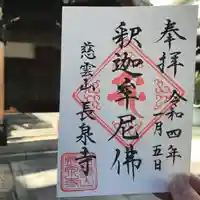 奉拝
令和四年
一月五日
釈迦牟尼佛
慈雲山
長泉寺